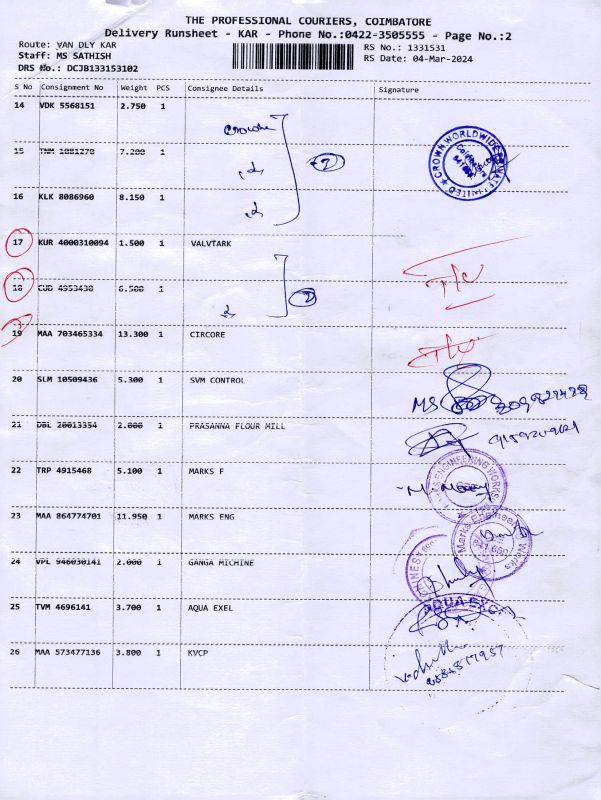 THE PROFESSIONAL COURIERS, COIMBATORE
Delivery Runsheet - KAR - Phone No.:0422-3505555 - Page No.:2
Route: VAN DLY KAR
RS No.: 1331531
Staff: MS SATHISH
RS Date: 04-Mar-2024
DRS No.: DCJB133153102
S No Consignment No Weight PCS Consignee Details Signature
14 VDK 5568151 2.750 1
Crowne
15 TNM 1081270 7.200 1
CROWN WORLDWIDE PRIVATE LIMITED
16 KLK 8086960 8.150 1
17 KUR 4000310094 1.500 1 VALVTARK
18 CUD 4953430 6.500 1
2
19 MAA 703465334 13.300 1 CIRCORE
20 SLM 10509436 5.300 1 SVM CONTROL
MS
21 DBL 20013354 2.000 1 PRASANNA FLOUR MILL
22 TRP 4915468 5.100 1 MARKS F
ENGINEERING WORKS
23 MAA 864774701 11.950 1 MARKS ENG
Marks Engineering Works
24 VPL 946030141 2.000 1 GANGA MICHINE
25 TVM 4696141 3.700 1 AQUA EXEL
AQUA EXCEL
26 MAA 573477136 3.800 1 KVCP